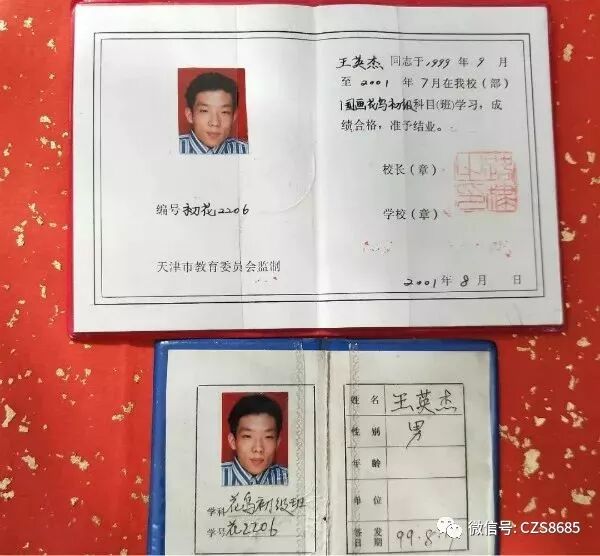 王英杰 同志于1999 年 9 月
至 2001 年 7 月在我校（部）
国画花鸟初级科目(班)学习，成
绩合格，准予结业。
校长（章）
学校（章）
2001 年 8 月 日
编号 初花2206
天津市教育委员会监制
学科 花鸟初级班
学号 花2206
姓名 王英杰
性别 男
年龄
单位
签发日期 99.8.
微信号: CZS8685